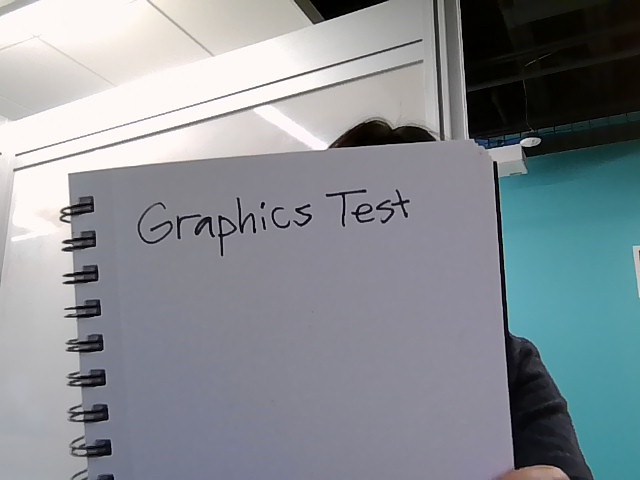 Graphics Test